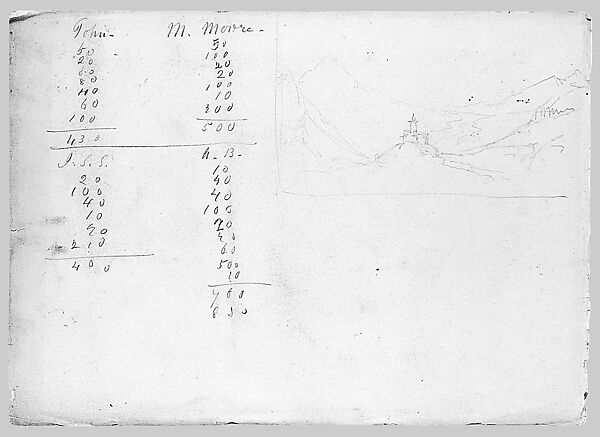 John-
50
20
80
40
60
100
430
J. S. S.
20
100
40
10
20
210
400
M. Moore-
50
100
20
20
100
10
200
500
B-
10
40
40
100
20
60
500
10
760